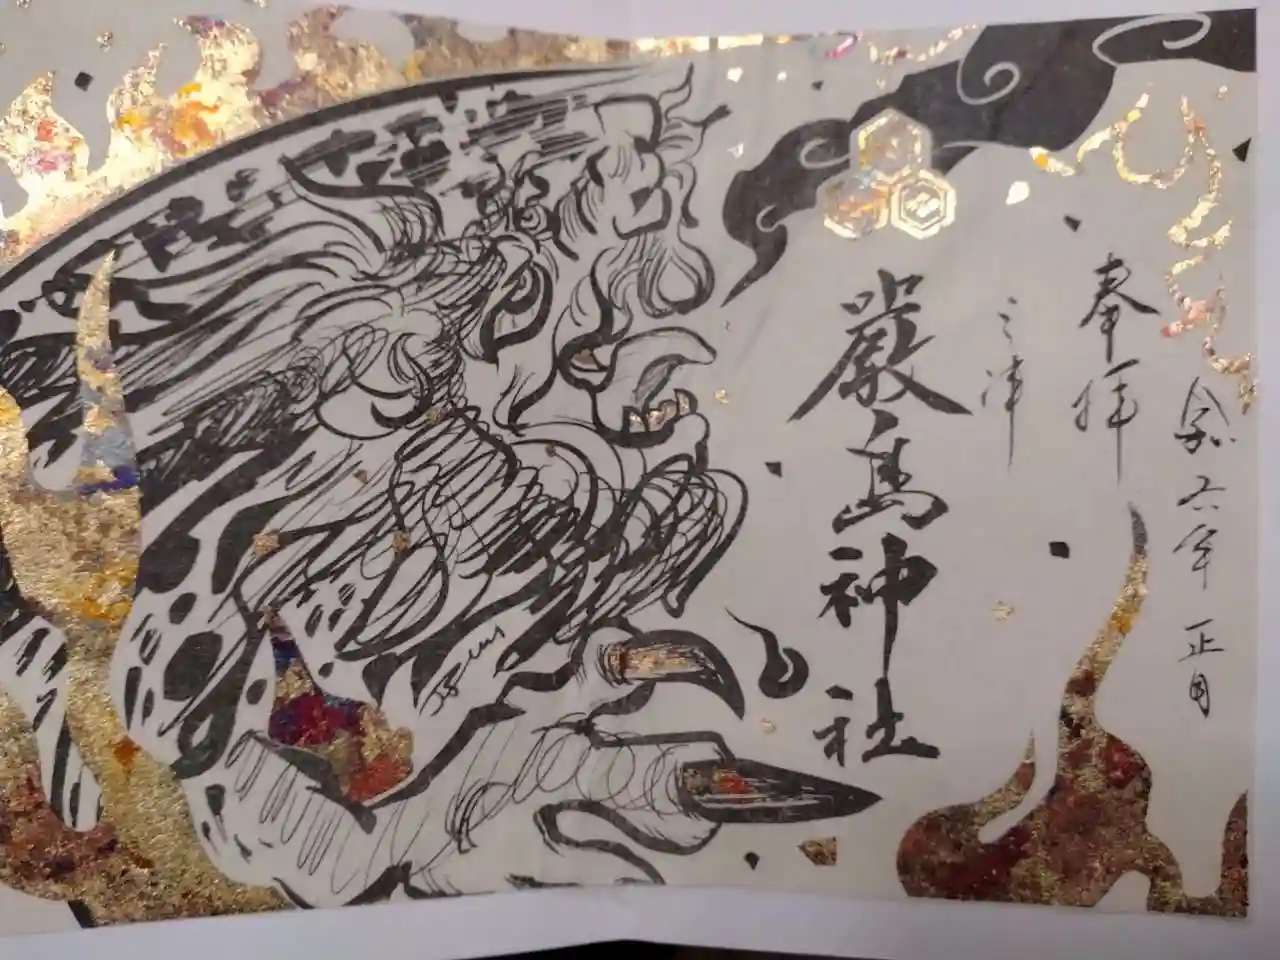 令和六年 正月
奉拝
三津
厳島神社